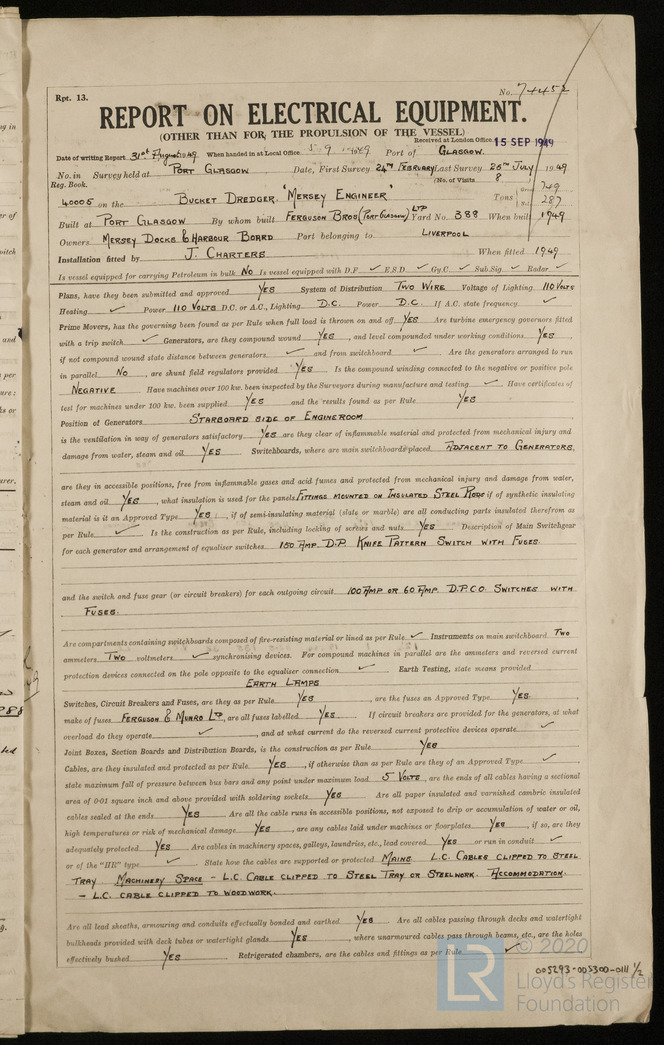 No. 74452
Rpt. 13.
REPORT ON ELECTRICAL EQUIPMENT.
(OTHER THAN FOR THE PROPULSION OF THE VESSEL)
Received at London Office 15 SEP 1949
Date of writing Report 31st August 1949 When handed in at Local Office 5.9 1949 Port of GLASGOW.
No. in Survey held at PORT GLASGOW Date, First Survey 24TH FEBRUARY Last Survey 25TH JULY 1949
Reg. Book. (No. of Visits 8
40005 on the BUCKET DREDGER, "MERSEY ENGINEER" Tons Gross 749 Net 287
Built at PORT GLASGOW By whom built FERGUSON BROS (PORT GLASGOW) LTD Yard No. 388 When built 1949
Owners MERSEY DOCKS & HARBOUR BOARD Port belonging to LIVERPOOL
Installation fitted by J. CHARTERS When fitted 1949
Is vessel equipped for carrying Petroleum in bulk NO Is vessel equipped with D.F. ✓ E.S.D. ✓ Gy.C. ✓ Sub.Sig. ✓ Radar ✓
Plans, have they been submitted and approved YES System of Distribution TWO WIRE Voltage of Lighting 110 VOLTS
Heating ✓ Power 110 VOLTS D.C. or A.C., Lighting D.C. Power D.C. If A.C. state frequency ✓
Prime Movers, has the governing been found as per Rule when full load is thrown on and off YES Are turbine emergency governors fitted
with a trip switch ✓ Generators, are they compound wound YES, and level compounded under working conditions YES,
if not compound wound state distance between generators ✓ and from switchboard ✓ Are the generators arranged to run
in parallel NO, are shunt field regulators provided YES Is the compound winding connected to the negative or positive pole
NEGATIVE Have machines over 100 kw. been inspected by the Surveyors during manufacture and testing ✓ Have certificates of
test for machines under 100 kw. been supplied YES and the results found as per Rule YES
Position of Generators STARBOARD SIDE OF ENGINEROOM
is the ventilation in way of generators satisfactory YES are they clear of inflammable material and protected from mechanical injury and
damage from water, steam and oil YES Switchboards, where are main switchboards placed ADJACENT TO GENERATORS,
are they in accessible positions, free from inflammable gases and acid fumes and protected from mechanical injury and damage from water,
steam and oil YES, what insulation is used for the panels FITTINGS MOUNTED ON INSULATED STEEL RODS if of synthetic insulating
material is it an Approved Type YES, if of semi-insulating material (slate or marble) are all conducting parts insulated therefrom as
per Rule ✓ Is the construction as per Rule, including locking of screws and nuts YES Description of Main Switchgear
for each generator and arrangement of equaliser switches 150 AMP. D.P. KNIFE PATTERN SWITCH WITH FUSES.
and the switch and fuse gear (or circuit breakers) for each outgoing circuit 100 AMP OR 60 AMP. D.P.C.O. SWITCHES WITH
FUSES.
Are compartments containing switchboards composed of fire-resisting material or lined as per Rule ✓ Instruments on main switchboard TWO
ammeters TWO voltmeters ✓ synchronising devices. For compound machines in parallel are the ammeters and reversed current
protection devices connected on the pole opposite to the equaliser connection ✓ Earth Testing, state means provided
EARTH LAMPS
Switches, Circuit Breakers and Fuses, are they as per Rule YES, are the fuses an Approved Type YES.
make of fuses FERGUSON & MUNRO LTD, are all fuses labelled YES If circuit breakers are provided for the generators, at what
overload do they operate ✓, and at what current do the reversed current protective devices operate ✓
Joint Boxes, Section Boards and Distribution Boards, is the construction as per Rule YES
Cables, are they insulated and protected as per Rule YES, if otherwise than as per Rule are they of an Approved Type ✓
state maximum fall of pressure between bus bars and any point under maximum load 5 VOLTS, are the ends of all cables having a sectional
area of 0·01 square inch and above provided with soldering sockets YES Are all paper insulated and varnished cambric insulated
cables sealed at the ends YES Are all the cable runs in accessible positions, not exposed to drip or accumulation of water or oil,
high temperatures or risk of mechanical damage YES, are any cables laid under machines or floorplates YES, if so, are they
adequately protected YES Are cables in machinery spaces, galleys, laundries, etc., lead covered YES or run in conduit ✓
or of the "HR" type ✓ State how the cables are supported or protected MAINS L.C. CABLES CLIPPED TO STEEL
TRAY MACHINERY SPACE - L.C. CABLE CLIPPED TO STEEL TRAY OR STEELWORK. ACCOMMODATION.
- L.C. CABLE CLIPPED TO WOODWORK.
Are all lead sheaths, armouring and conduits effectually bonded and earthed YES Are all cables passing through decks and watertight
bulkheads provided with deck tubes or watertight glands YES, where unarmoured cables pass through beams, etc., are the holes
effectively bushed YES Refrigerated chambers, are the cables and fittings as per Rule ✓
© 2020
Lloyd's Register
Foundation
LR
005293-005300-0111 1/2